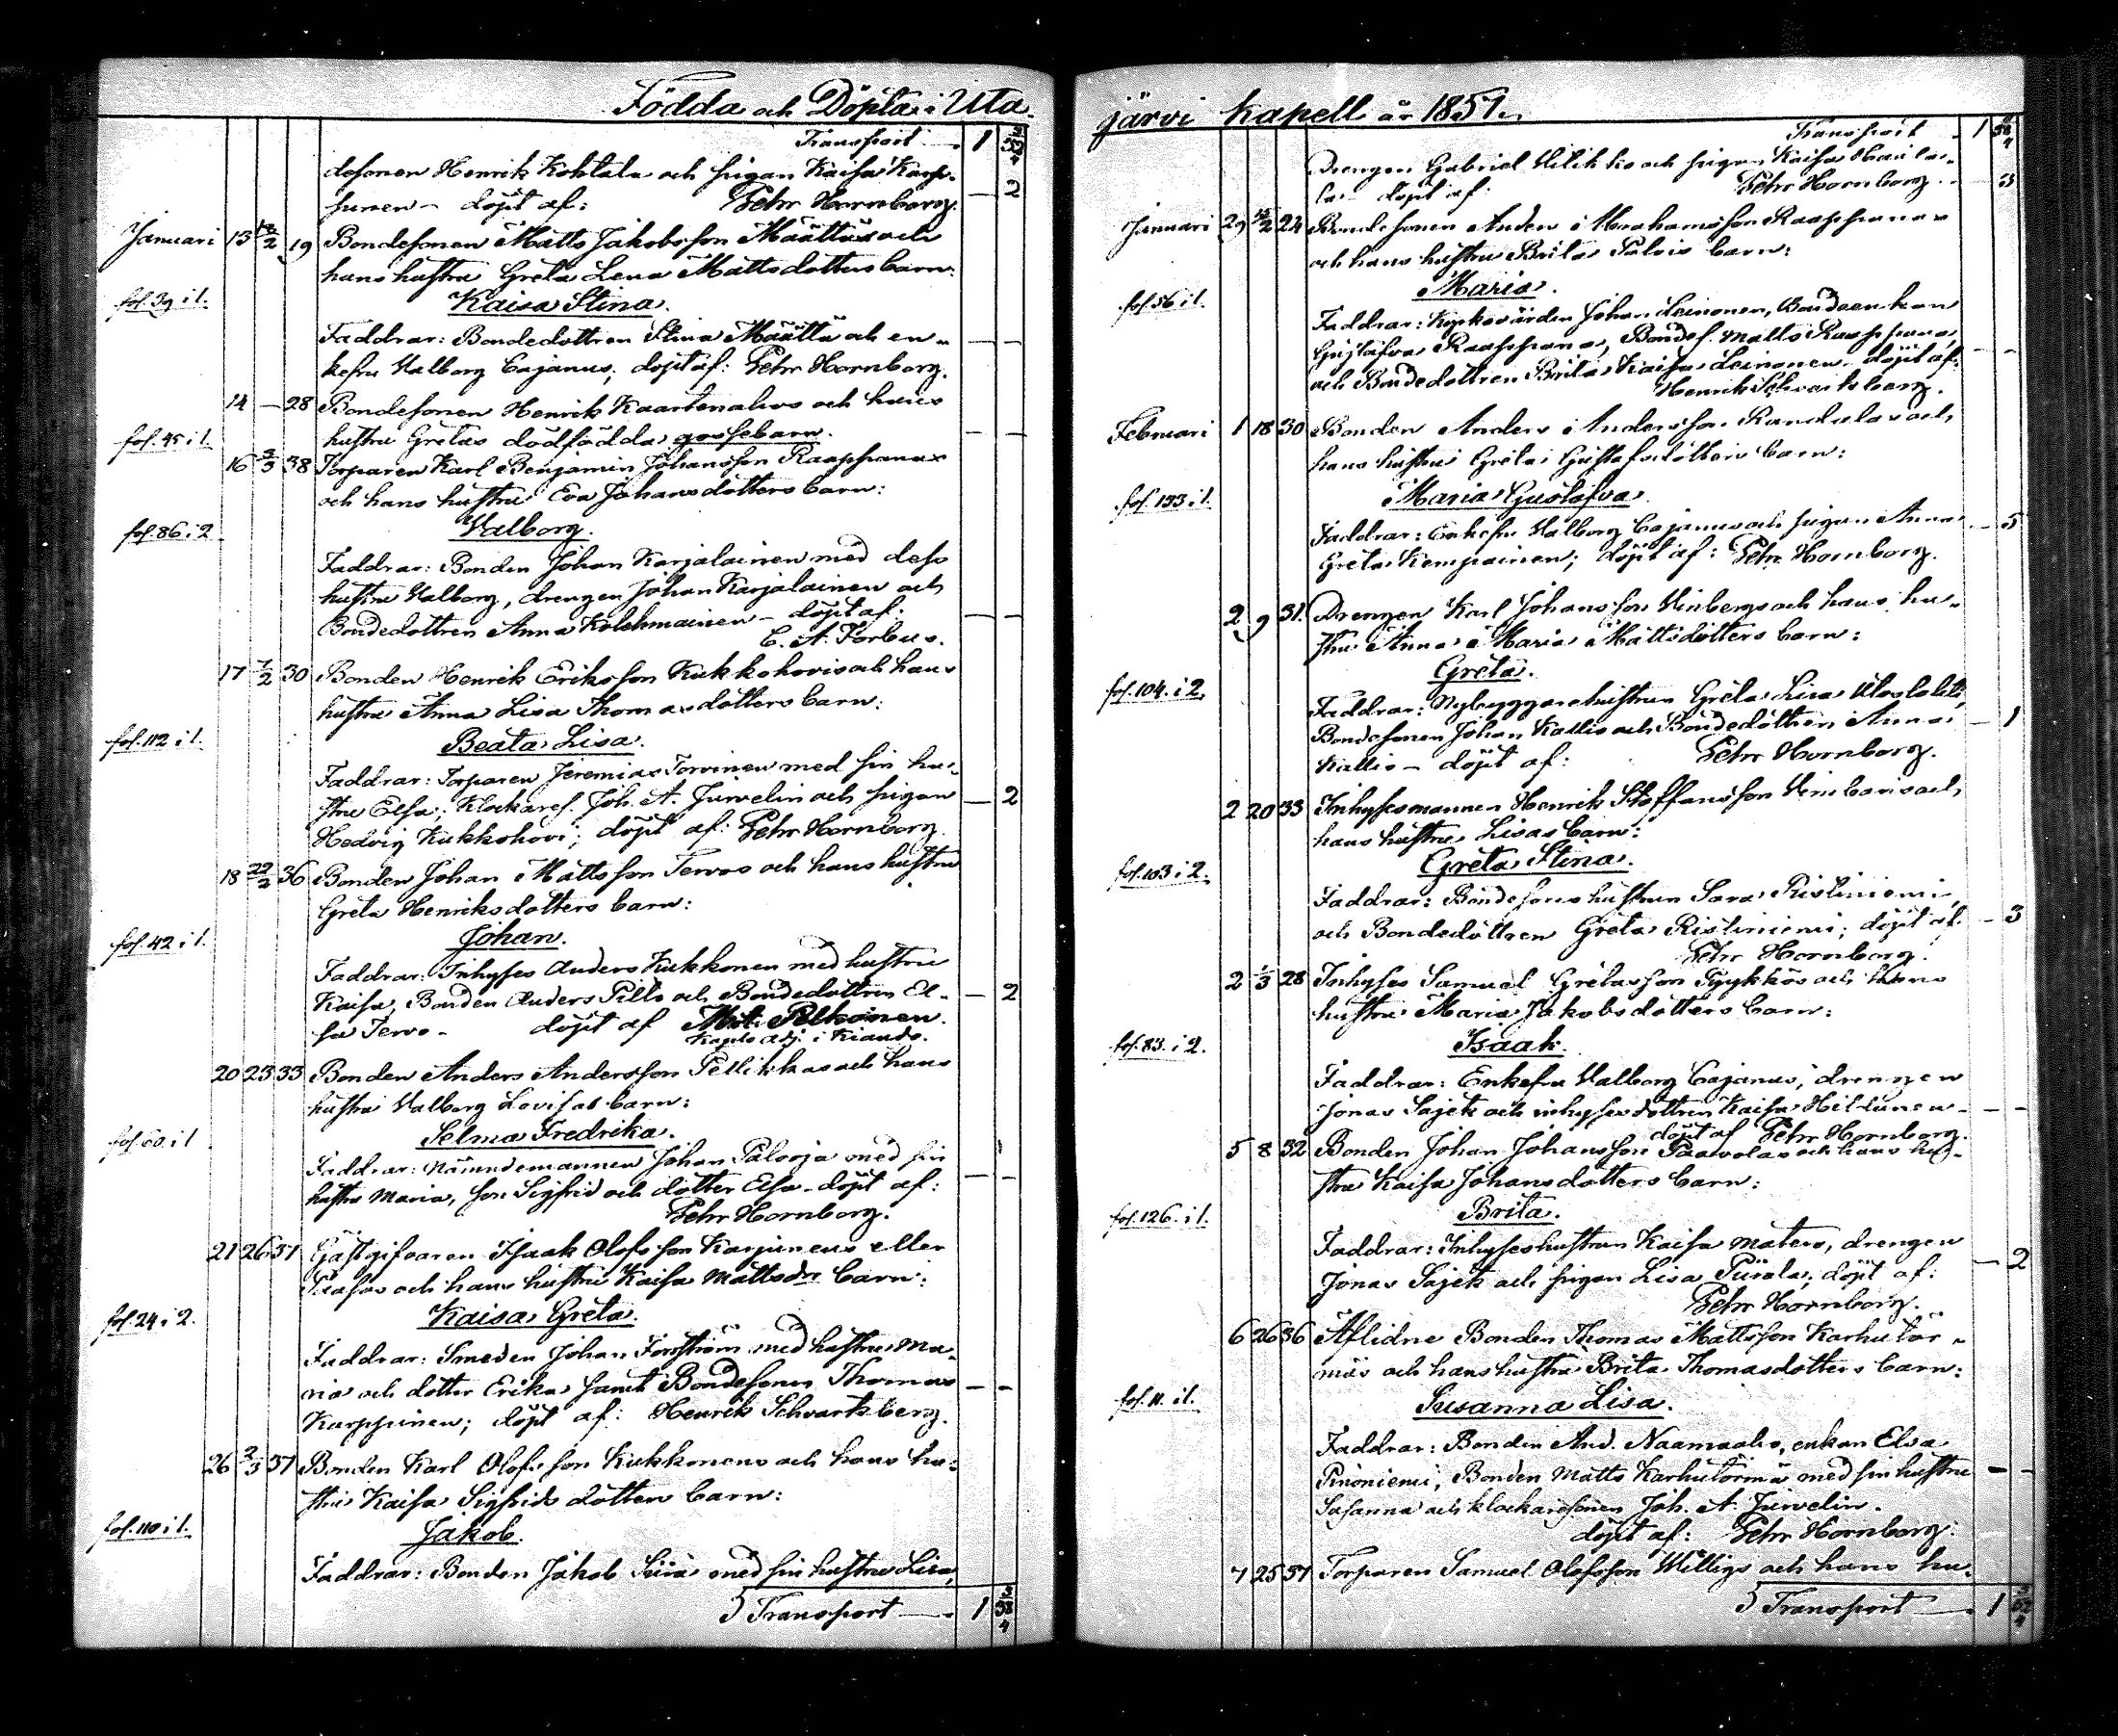 Födda och Döpta i Uta
Transport 1
desonen Henrik Kohtala och pigan Kaisa Karp-
punen - döpt af: Pehr Hornborg. — 2
Januari 13 2 19 Bondesonen Matts Jakobsson Määttäs och
hans hustru Greta Lena Mattsdotters barn:
fol. 39 i 1. Kaisa Stina.
Faddrar: Bondedottren Stina Määttä och en-
kefru Valborg Cajanus; döpt af: Pehr Hornborg. — —
14 — 28 Bondesonen Henrik Kaartenahos och hans
fol. 45 i 1. hustru Gretas dödfödda gossebarn. — —
16 2/3 38 Torparen Karl Benjamin Johansson Raappanas
och hans hustru Eva Johansdotters barn:
fol. 86 i 2 Valborg.
Faddrar: Bonden Johan Karjalainen med dess
hustru Valborg, drengen Johan Karjalainen och
Bondedottren Anna Kolehmainen - döpt af. — —
C. A. Forbus.
17 7/2 30 Bonden Henrik Eriksson Kukkohovis och hans
hustru Anna Lisa Thomasdotters barn:
fol. 112 i 1. Beata Lisa.
Faddrar: Torparen Jeremias Torvinen med sin hu-
stru Elsa; Klockares. Joh. A. Jurvelin och pigan — 2
Hedvig Kukkohovi; döpt af: Pehr Hornborg.
18 22/2 36 Bonden Johan Mattsson Tervos och hans hustru
Greta Henriksdotters barn:
fol. 42 i 1. Johan.
Faddrar: Inhyses Anders Kukkonen med hustru
Kaisa, Bonden Anders Pilto och Bondedottren El- — 2
sa Tervo - döpt af Matt. Pelkonen.
Kapls adj. i Kiando.
20 23 33 Bonden Anders Andersson Pellikkas och hans
hustru Valborg Lovisas barn:
fol. 60. i 1 Selma Fredrika.
Faddrar: Nämndemannen Johan Paloja med sin
hustru Maria, son Sigfrid och dotter Elsa - döpt af: — —
Pehr Hornborg.
21 26 37 Gästgifvaren Isaak Olofsson Karppinens eller
och hans hustru Kaisa Mattsdrs barn:
fol. 24 i 2. Kaisa Greta.
Faddrar: Smeden Johan Forsström med hustru Ma-
ria och dotter Erika samt Bondesonen Thomas — —
Karppinen; döpt af: Henrik Schvartzberg.
26 2/3 37 Bonden Karl Olofsson Kukkonens och hans hu-
stru Kaisa Sigfridsdotters barn:
fol. 110 i 1. Jakob.
Faddrar: Bonden Jakob Siira med sin hustru Lisa,
Transport — 1
järvi kapell år 1851.
Transport 1
Drengen Gabriel Hilikko och pigan Kaisa
la - döpt af Pehr Hornborg. — 3
Januari 29 24 Bondesonen Anders Abrahamsson Raappanas
och hans hustru Brita barn:
fol. 56 i 1. Maria.
Faddrar: Kyrkovärden Johan Leinonen, Bondeenkan
Gustafva Raappana, Bondes. Matts Raappana,
och Bondedottren Brita Kaisa Leinonen - döpt af: — —
Henrik Schvartzberg.
Februari 1 18 30 Bonden Anders Andersson Kandelas och
hans hustru Greta Gustafsdotters barn:
fol. 133 i 1. Maria Gustafva.
Faddrar: Enkefru Valborg Cajanus och pigan Anna — 5
Greta Kempainen; döpt af: Pehr Hornborg.
2 9 31. Drengen Karl Johansson Vinbergs och hans hu-
stru Anna Maria Mattsdotters barn:
Greta.
fol. 104. i 2. Faddrar: Nybyggarehustrun Greta Lisa
Bondesonen Johan Kallio och Bondedottren Anna — 1
Kallio - döpt af: Pehr Hornborg.
2 20 33 Inhysesmannen Henrik Staffansson och
hans hustru Lisas barn:
fol. 103 i 2. Greta Stina.
Faddrar: Bondesonshustrun Sara Ristiniemi,
och Bondedottren Greta Ristiniemi; döpt af. — 3
Pehr Hornborg.
2 1/3 28 Inhyses Samuel Gretasson Pyykkös och hans
hustru Maria Jakobsdotters barn:
fol. 83. i 2. Isaak.
Faddrar: Enkefru Valborg Cajanus, drengen
Jonas Sajets och inhysesdottren Kaisa Hiltunen - — —
döpt af Pehr Hornborg.
5 8 32 Bonden Johan Johansson Paavolas och hans hu-
stru Kaisa Johansdotters barn:
fol. 126. i 1. Brita.
Faddrar: Inhyseshustrun Kaisa Matero, drengen
Jonas Sajets och pigan Lisa Piirala; döpt af: — 2
Pehr Hornborg.
6 26 36 Aflidne Bonden Thomas Mattsson Karhutör-
mäs och hans hustru Brita Thomasdotters barn:
fol. 11. i 1. Susanna Lisa.
Faddrar: Bonden And. Naamaaho, enkan Elsa
Bonden Matts Karhutörmä med sin hustru — —
Susanna och klockaresonen Joh. A. Jurvelin.
döpt af: Pehr Hornborg.
7 25 37 Torparen Samuel Olofsson Willigs och hans hu-
Transport — 1